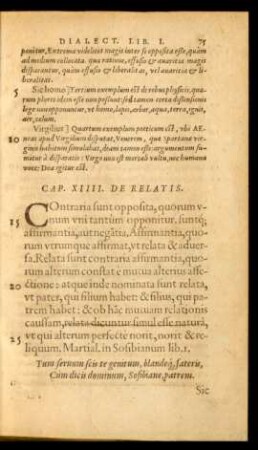 DIALECT. LIB. I. 75
ponitur, Extrema videlicet magis inter se opposita esse, quàm
ad medium collocata. Qua ratione, effusio & auaritia magis
disparantur, quàm effusio & liberalitas, vel auaritia & li-
beralitas.
5 Sic homo] Tertium exemplum est de rebus physicis, quo-
rum plures idem esse non possunt: sed tamen certa distinctionis
lege non opponuntur, vt homo, lapis, arbor, aqua, terra, ignis,
aër, cælum.
Virgilius] Quartum exemplum poëticum est, vbi AE-
10 neas apud Virgilium disputat, Venerem, quæ spartanæ virgi-
nis habitum simulabat, deam tamen esse: argumentum su-
mitur à disparatis: Virgo una est mortali vultu, nec humana
voce: Dea igitur est.
CAP. XIIII. DE RELATIS.
COntraria sunt opposita, quorum v-
15 num vni tantùm opponitur, suntq́;
affirmantia, aut negātia, Affirmantia, quo-
rum vtrunque affirmat, vt relata & aduer-
sa. Relata sunt contraria affirmantia, quo-
rum alterum constat è mutua alterius affe-
20 ctione: atque inde nominata sunt relata,
vt pater, qui filium habet: & filius, qui pa-
trem habet: & ob hāc mutuam relationis
caussam, relata dicuntur simul esse natura,
25 vt qui alterum perfectè norit, norit & re-
liquum. Martial. in Sosibianum lib. 1.
Tum seruum scis te genitum, blandéq́; fateris,
Cùm dicis dominum, Sosibiane, patrem.
Sic